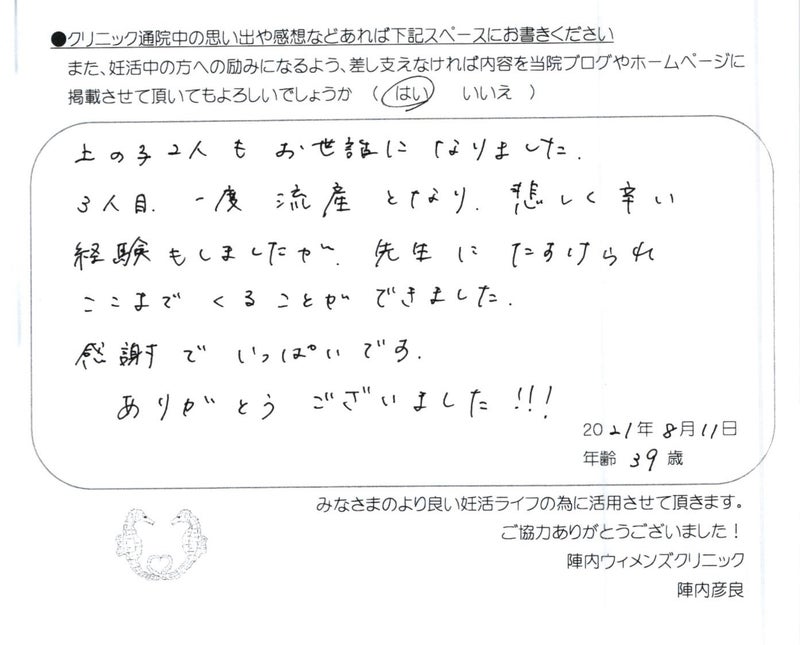 ●クリニック通院中の思い出や感想などあれば下記スペースにお書きください
また、妊活中の方への励みになるよう、差し支えなければ内容を当院ブログやホームページに
掲載させて頂いてもよろしいでしょうか （ はい いいえ ）
上の子2人も お世話に なりました.
3人目. 一度 流産 となり. 悲しく 辛い
経験もしましたが. 先生に たすけられ
ここまで くることが できました.
感謝で いっぱいです.
ありがとう ございました!!!
2021年8月11日
年齢 39歳
みなさまのより良い妊活ライフの為に活用させて頂きます。
ご協力ありがとうございました！
陣内ウィメンズクリニック
陣内彦良